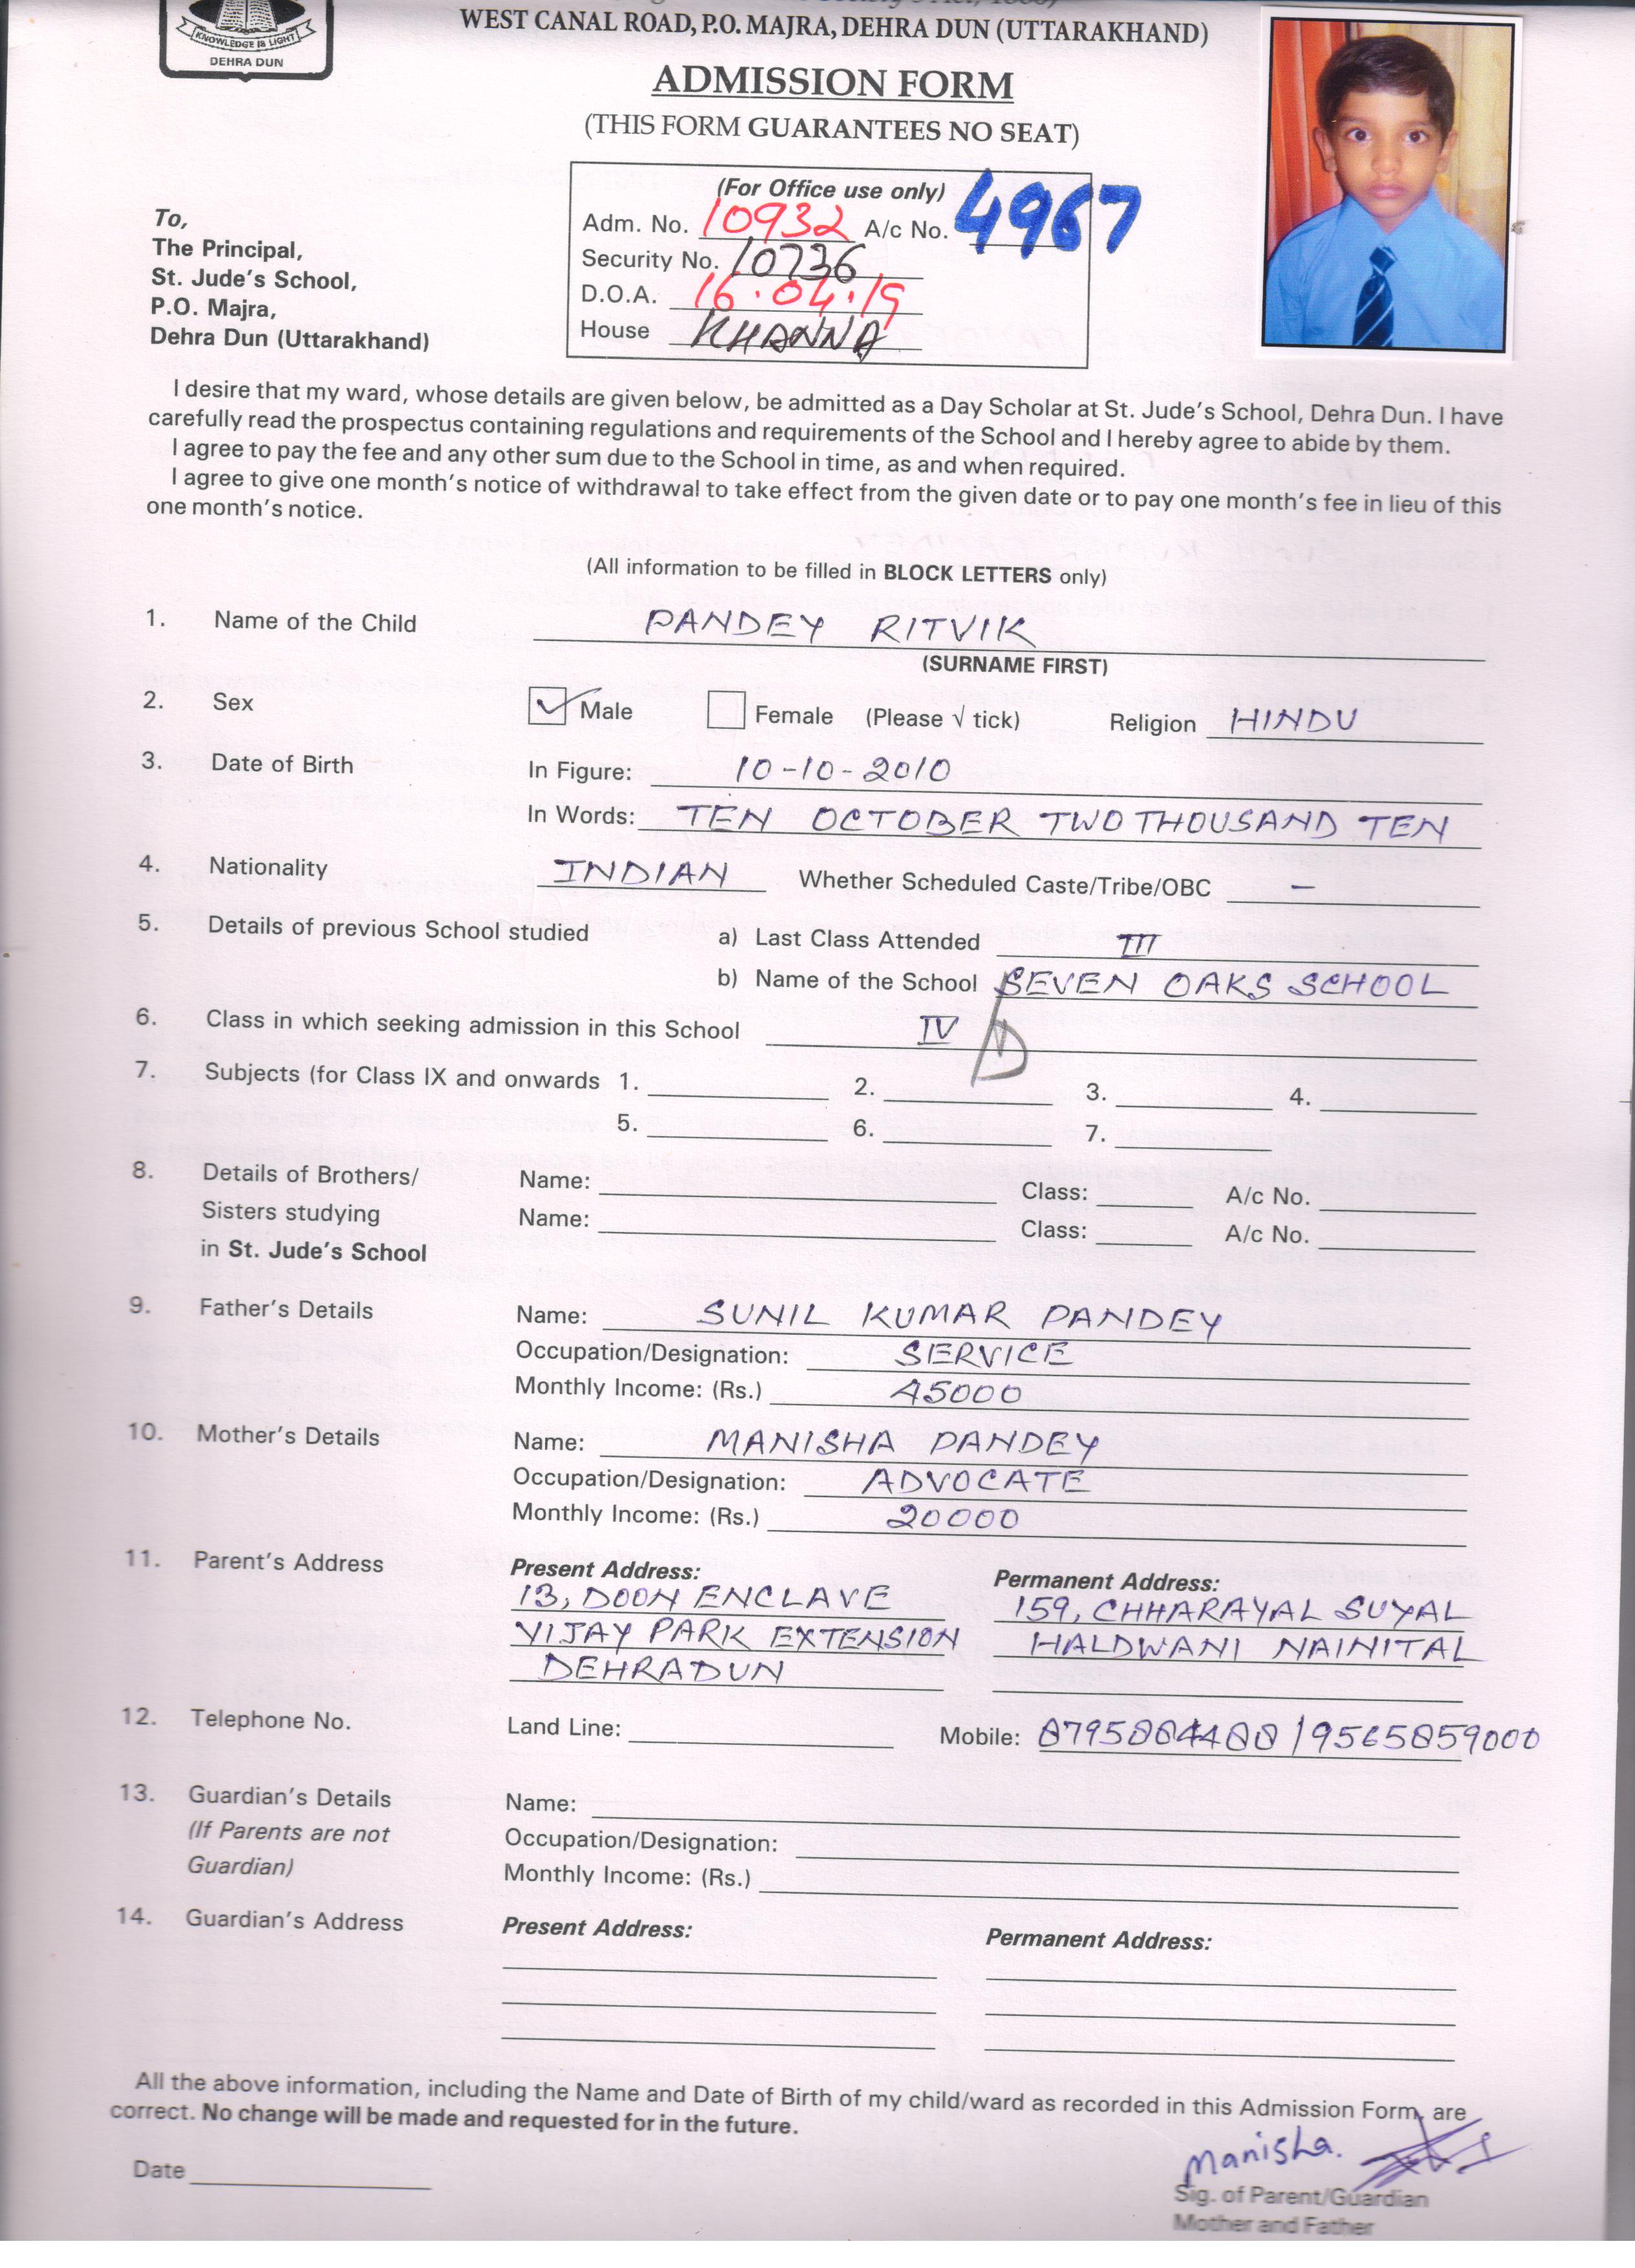 KNOWLEDGE IS LIGHT
DEHRA DUN
WEST CANAL ROAD, P.O. MAJRA, DEHRA DUN (UTTARAKHAND)
ADMISSION FORM
(THIS FORM GUARANTEES NO SEAT)
(For Office use only)
Adm. No. 10932 A/c No. 4967
Security No. 10736
D.O.A. 16.04.19
House KHANNA
To,
The Principal,
St. Jude's School,
P.O. Majra,
Dehra Dun (Uttarakhand)
I desire that my ward, whose details are given below, be admitted as a Day Scholar at St. Jude's School, Dehra Dun. I have
carefully read the prospectus containing regulations and requirements of the School and I hereby agree to abide by them.
I agree to pay the fee and any other sum due to the School in time, as and when required.
I agree to give one month's notice of withdrawal to take effect from the given date or to pay one month's fee in lieu of this
one month's notice.
(All information to be filled in BLOCK LETTERS only)
1. Name of the Child PANDEY RITVIK
(SURNAME FIRST)
2. Sex Male Female (Please √ tick) Religion HINDU
3. Date of Birth In Figure: 10-10-2010
In Words: TEN OCTOBER TWO THOUSAND TEN
4. Nationality INDIAN Whether Scheduled Caste/Tribe/OBC –
5. Details of previous School studied a) Last Class Attended III
b) Name of the School SEVEN OAKS SCHOOL
6. Class in which seeking admission in this School IV
7. Subjects (for Class IX and onwards 1. 2. 3. 4.
5. 6. 7.
8. Details of Brothers/ Name: Class: A/c No.
Sisters studying Name: Class: A/c No.
in St. Jude's School
9. Father's Details Name: SUNIL KUMAR PANDEY
Occupation/Designation: SERVICE
Monthly Income: (Rs.) 45000
10. Mother's Details Name: MANISHA PANDEY
Occupation/Designation: ADVOCATE
Monthly Income: (Rs.) 20000
11. Parent's Address Present Address: Permanent Address:
13, DOON ENCLAVE 159, CHHARAYAL SUYAL
VIJAY PARK EXTENSION HALDWANI NAINITAL
DEHRADUN
12. Telephone No. Land Line: Mobile: 8795884488 / 9565859000
13. Guardian's Details Name:
(If Parents are not Occupation/Designation:
Guardian) Monthly Income: (Rs.)
14. Guardian's Address Present Address: Permanent Address:
All the above information, including the Name and Date of Birth of my child/ward as recorded in this Admission Form, are
correct. No change will be made and requested for in the future.
Manisha.
Date
Sig. of Parent/Guardian
Mother and Father